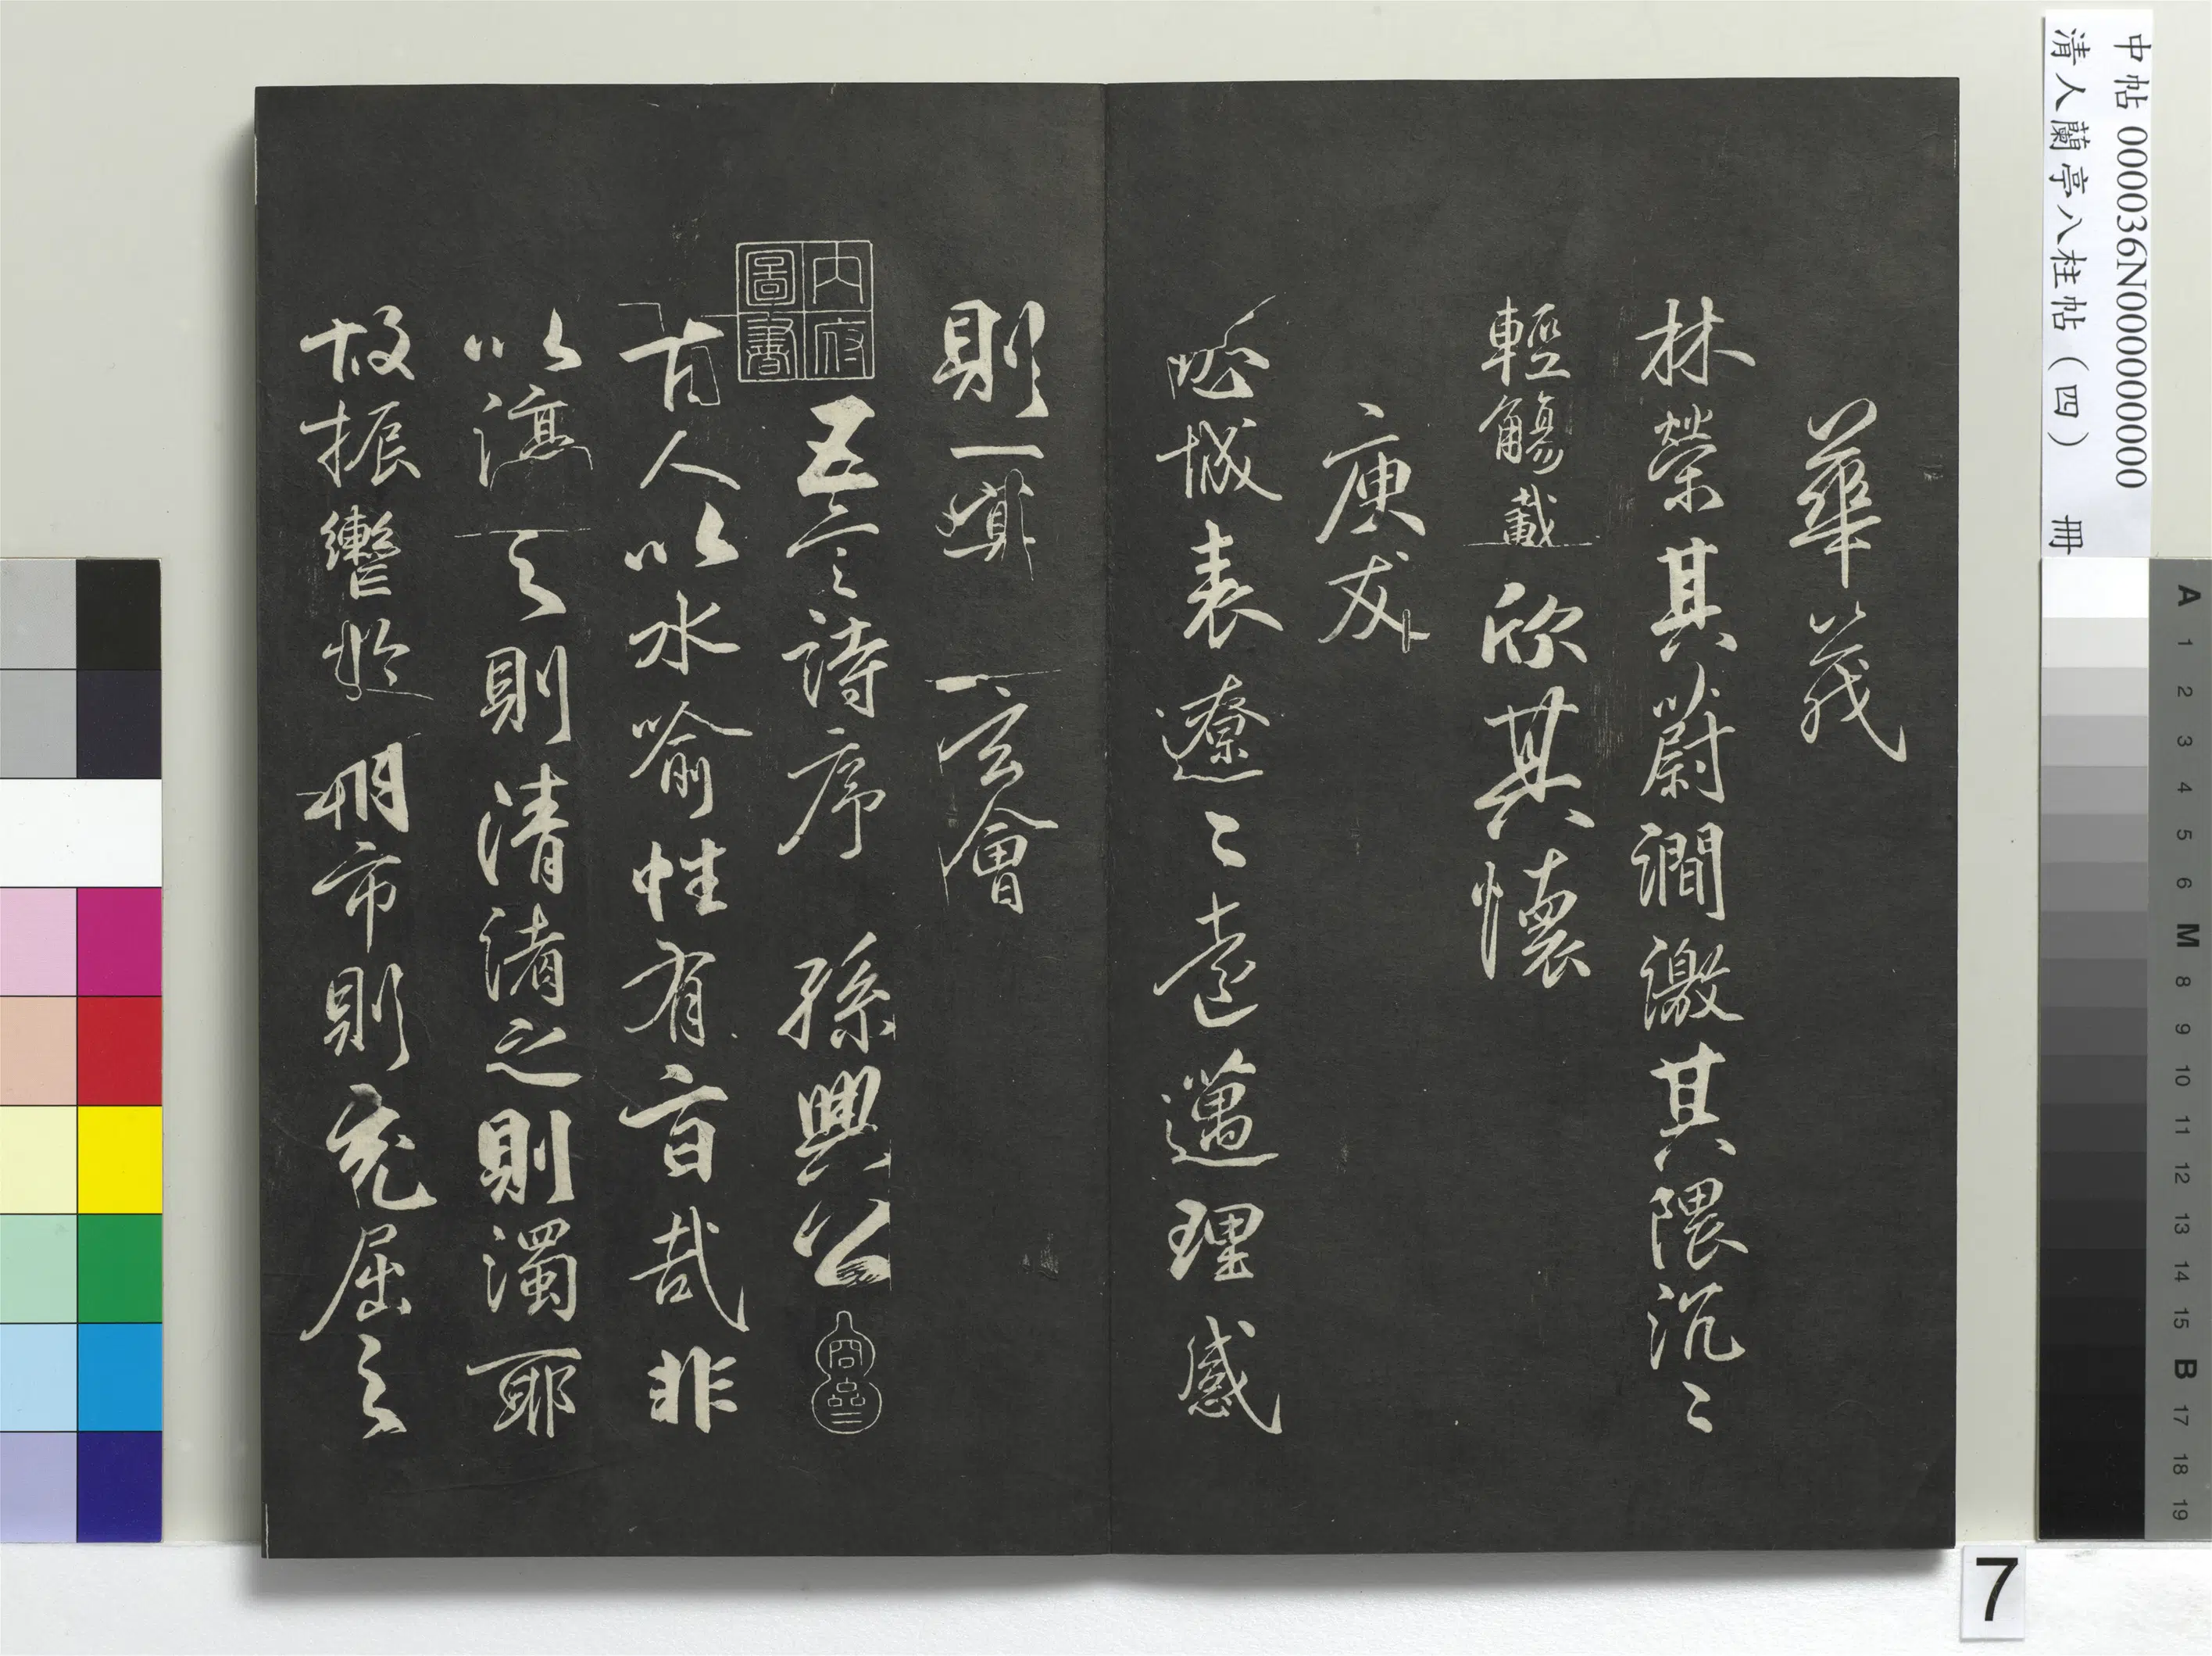 華茂
林榮其蔚澗激其隈泛〻
輕觴載欣其懷
庾友
城表遼〻遠邁理感
則一 玄會
五言詩序 孫興公
古人以水喻性有旨哉非
以渟之則清淆之則濁耶
故振轡於朝市則充屈之
內府圖書
中帖 000036N000000000
清人蘭亭八柱帖（四） 冊
A 1 2 3 4 5 6 M 8 9 10 11 12 13 14 15 B 17 18 19
7